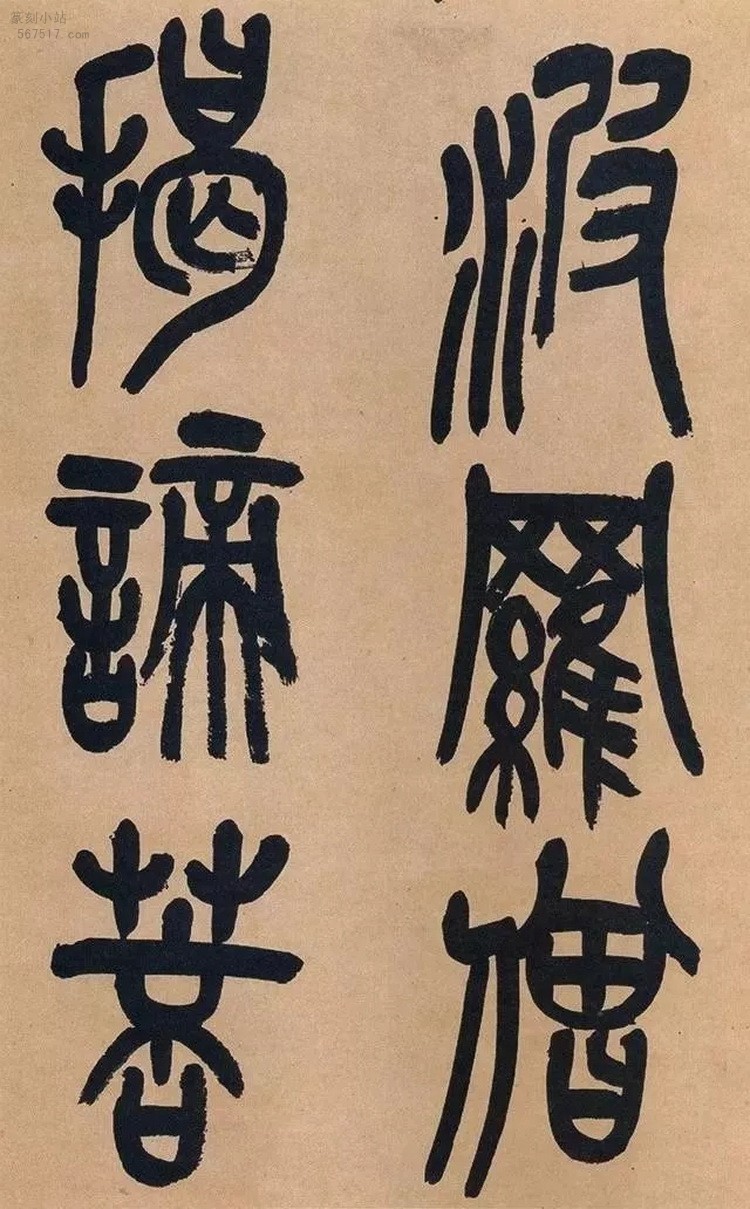 篆刻小站
567517.com
波羅僧
揭諦菩